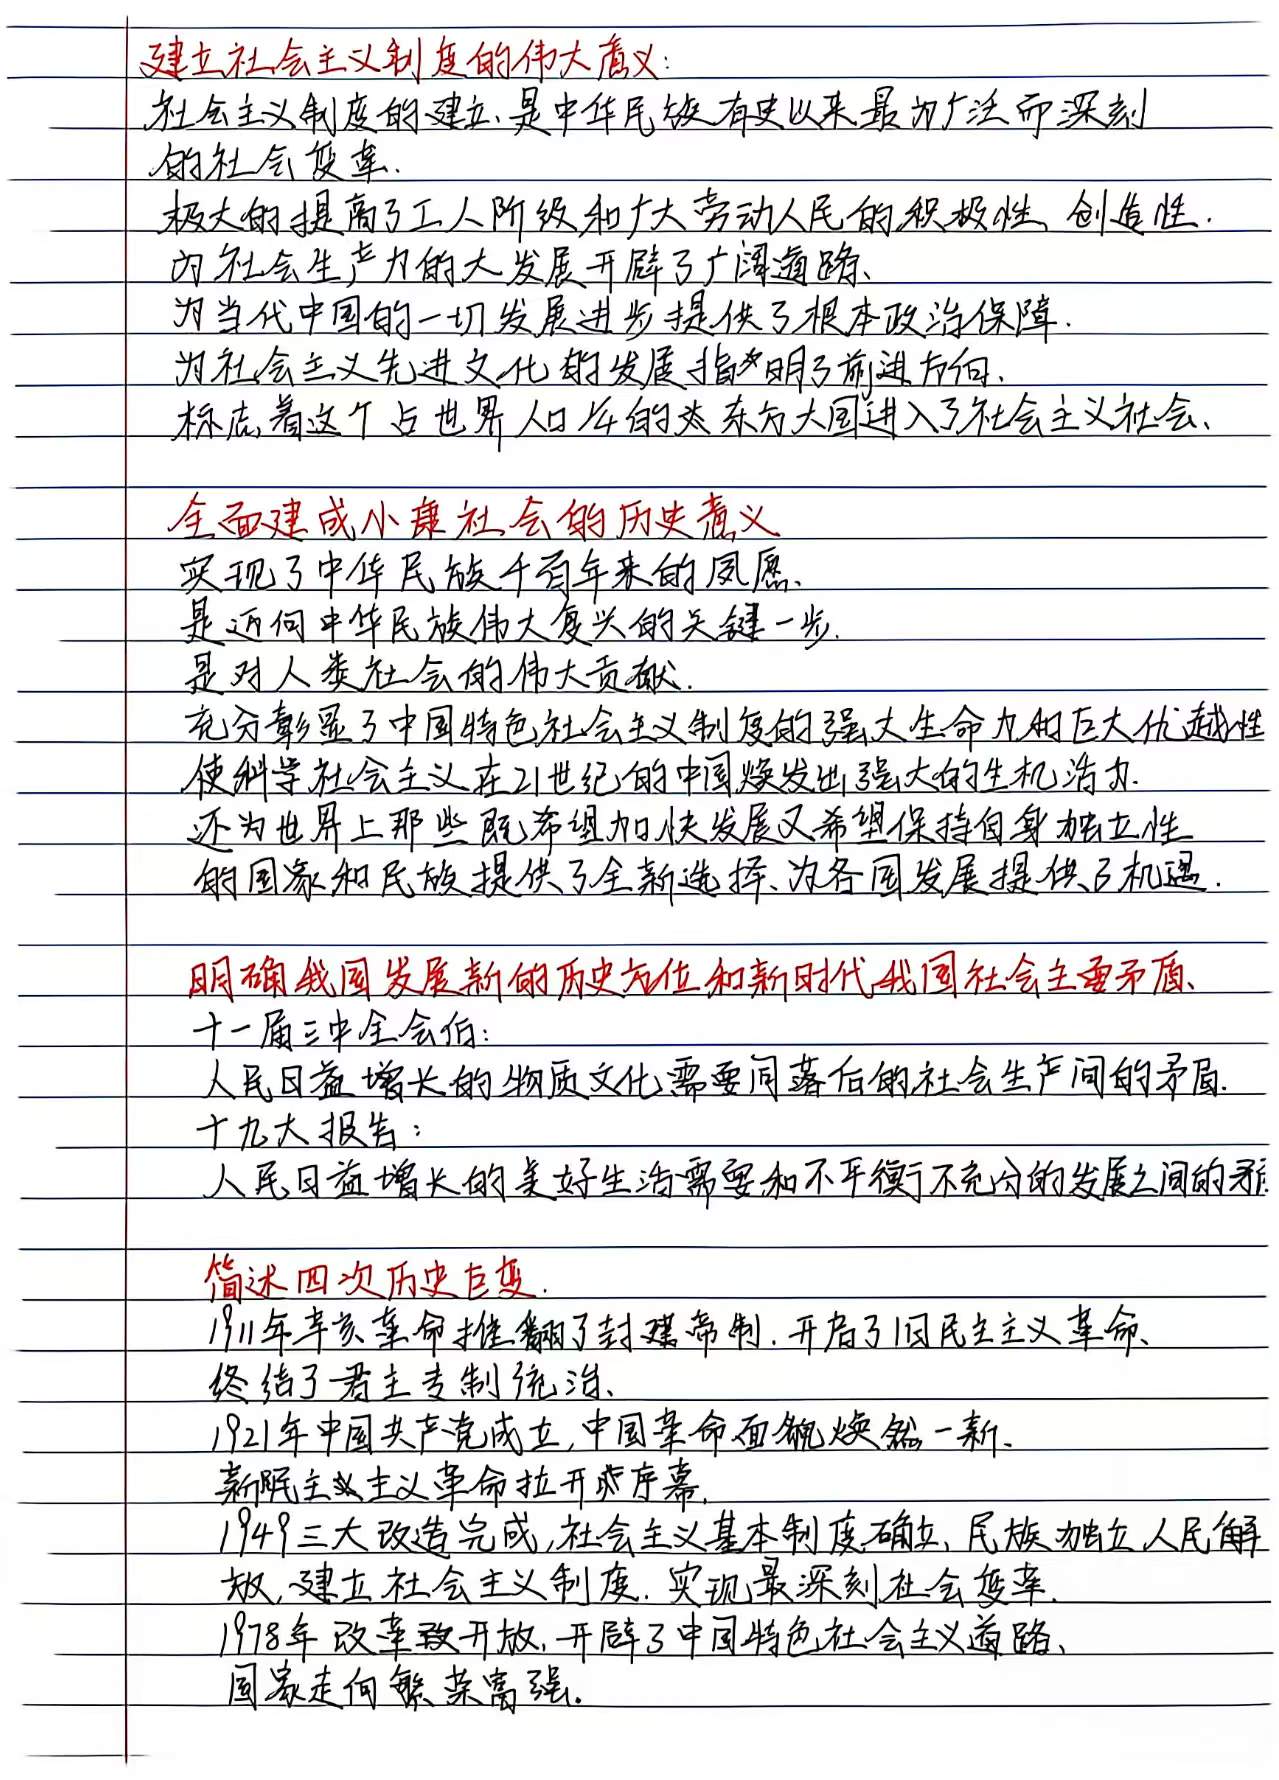 建立社会主义制度的伟大意义:
社会主义制度的建立、是中华民族有史以来最为广泛而深刻
的社会变革.
极大的提高了工人阶级和广大劳动人民的积极性、创造性.
为社会生产力的大发展开辟了广阔道路、
为当代中国的一切发展进步提供了根本政治保障.
为社会主义先进文化的发展指明了前进方向.
标志着这个占世界人口1/4的东方大国进入了社会主义社会、
全面建成小康社会的历史意义
实现了中华民族千百年来的夙愿、
是迈向中华民族伟大复兴的关键一步.
是对人类社会的伟大贡献.
充分彰显了中国特色社会主义制度的强大生命力和巨大优越性
使科学社会主义在21世纪的中国焕发出强大的生机活力.
还为世界上那些既希望加快发展又希望保持自身独立性
的国家和民族提供了全新选择、为各国发展提供了机遇.
明确我国发展新的历史方位和新时代我国社会主要矛盾、
十一届三中全会后:
人民日益增长的物质文化需要同落后的社会生产间的矛盾.
十九大报告:
人民日益增长的美好生活需要和不平衡不充分的发展之间的矛
简述四次历史巨变.
1911年辛亥革命推翻了封建帝制.开启了旧民主主义革命、
终结了君主专制统治、
1921年中国共产党成立,中国革命面貌焕然一新、
新民主主义革命拉开序幕,
1949三大改造完成,社会主义基本制度确立,民族独立人民解
放,建立社会主义制度.实现最深刻社会变革.
1978年改革开放,开辟了中国特色社会主义道路、
国家走向繁荣富强。